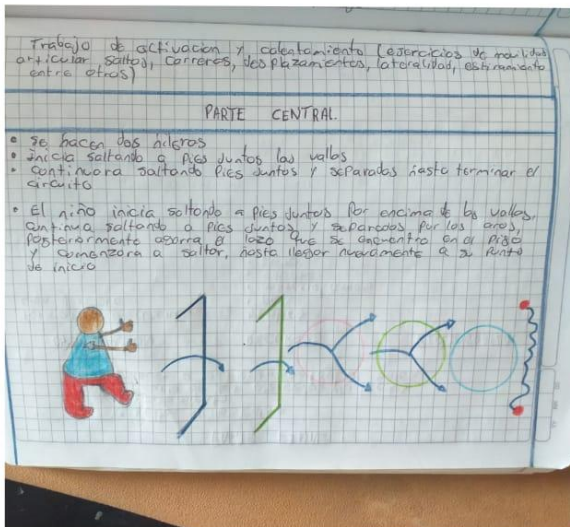 Trabajo de activacion y calentamiento (ejercicios de movilidad
articular, saltos, carreras, desplazamientos, lateralidad, estiramiento
entre otros)
PARTE CENTRAL.
• se hacen dos hileras
• inicia saltando a pies juntos las vallas
• continuara saltando pies juntos y separados hasta terminar el
circuito
• El niño inicia saltando a pies juntos por encima de las vallas,
continua saltando a pies juntos y separados por los aros,
posteriormente agarra el lazo que se encuentra en el piso
y comenzara a saltar, hasta llegar nuevamente a su punto
de inicio